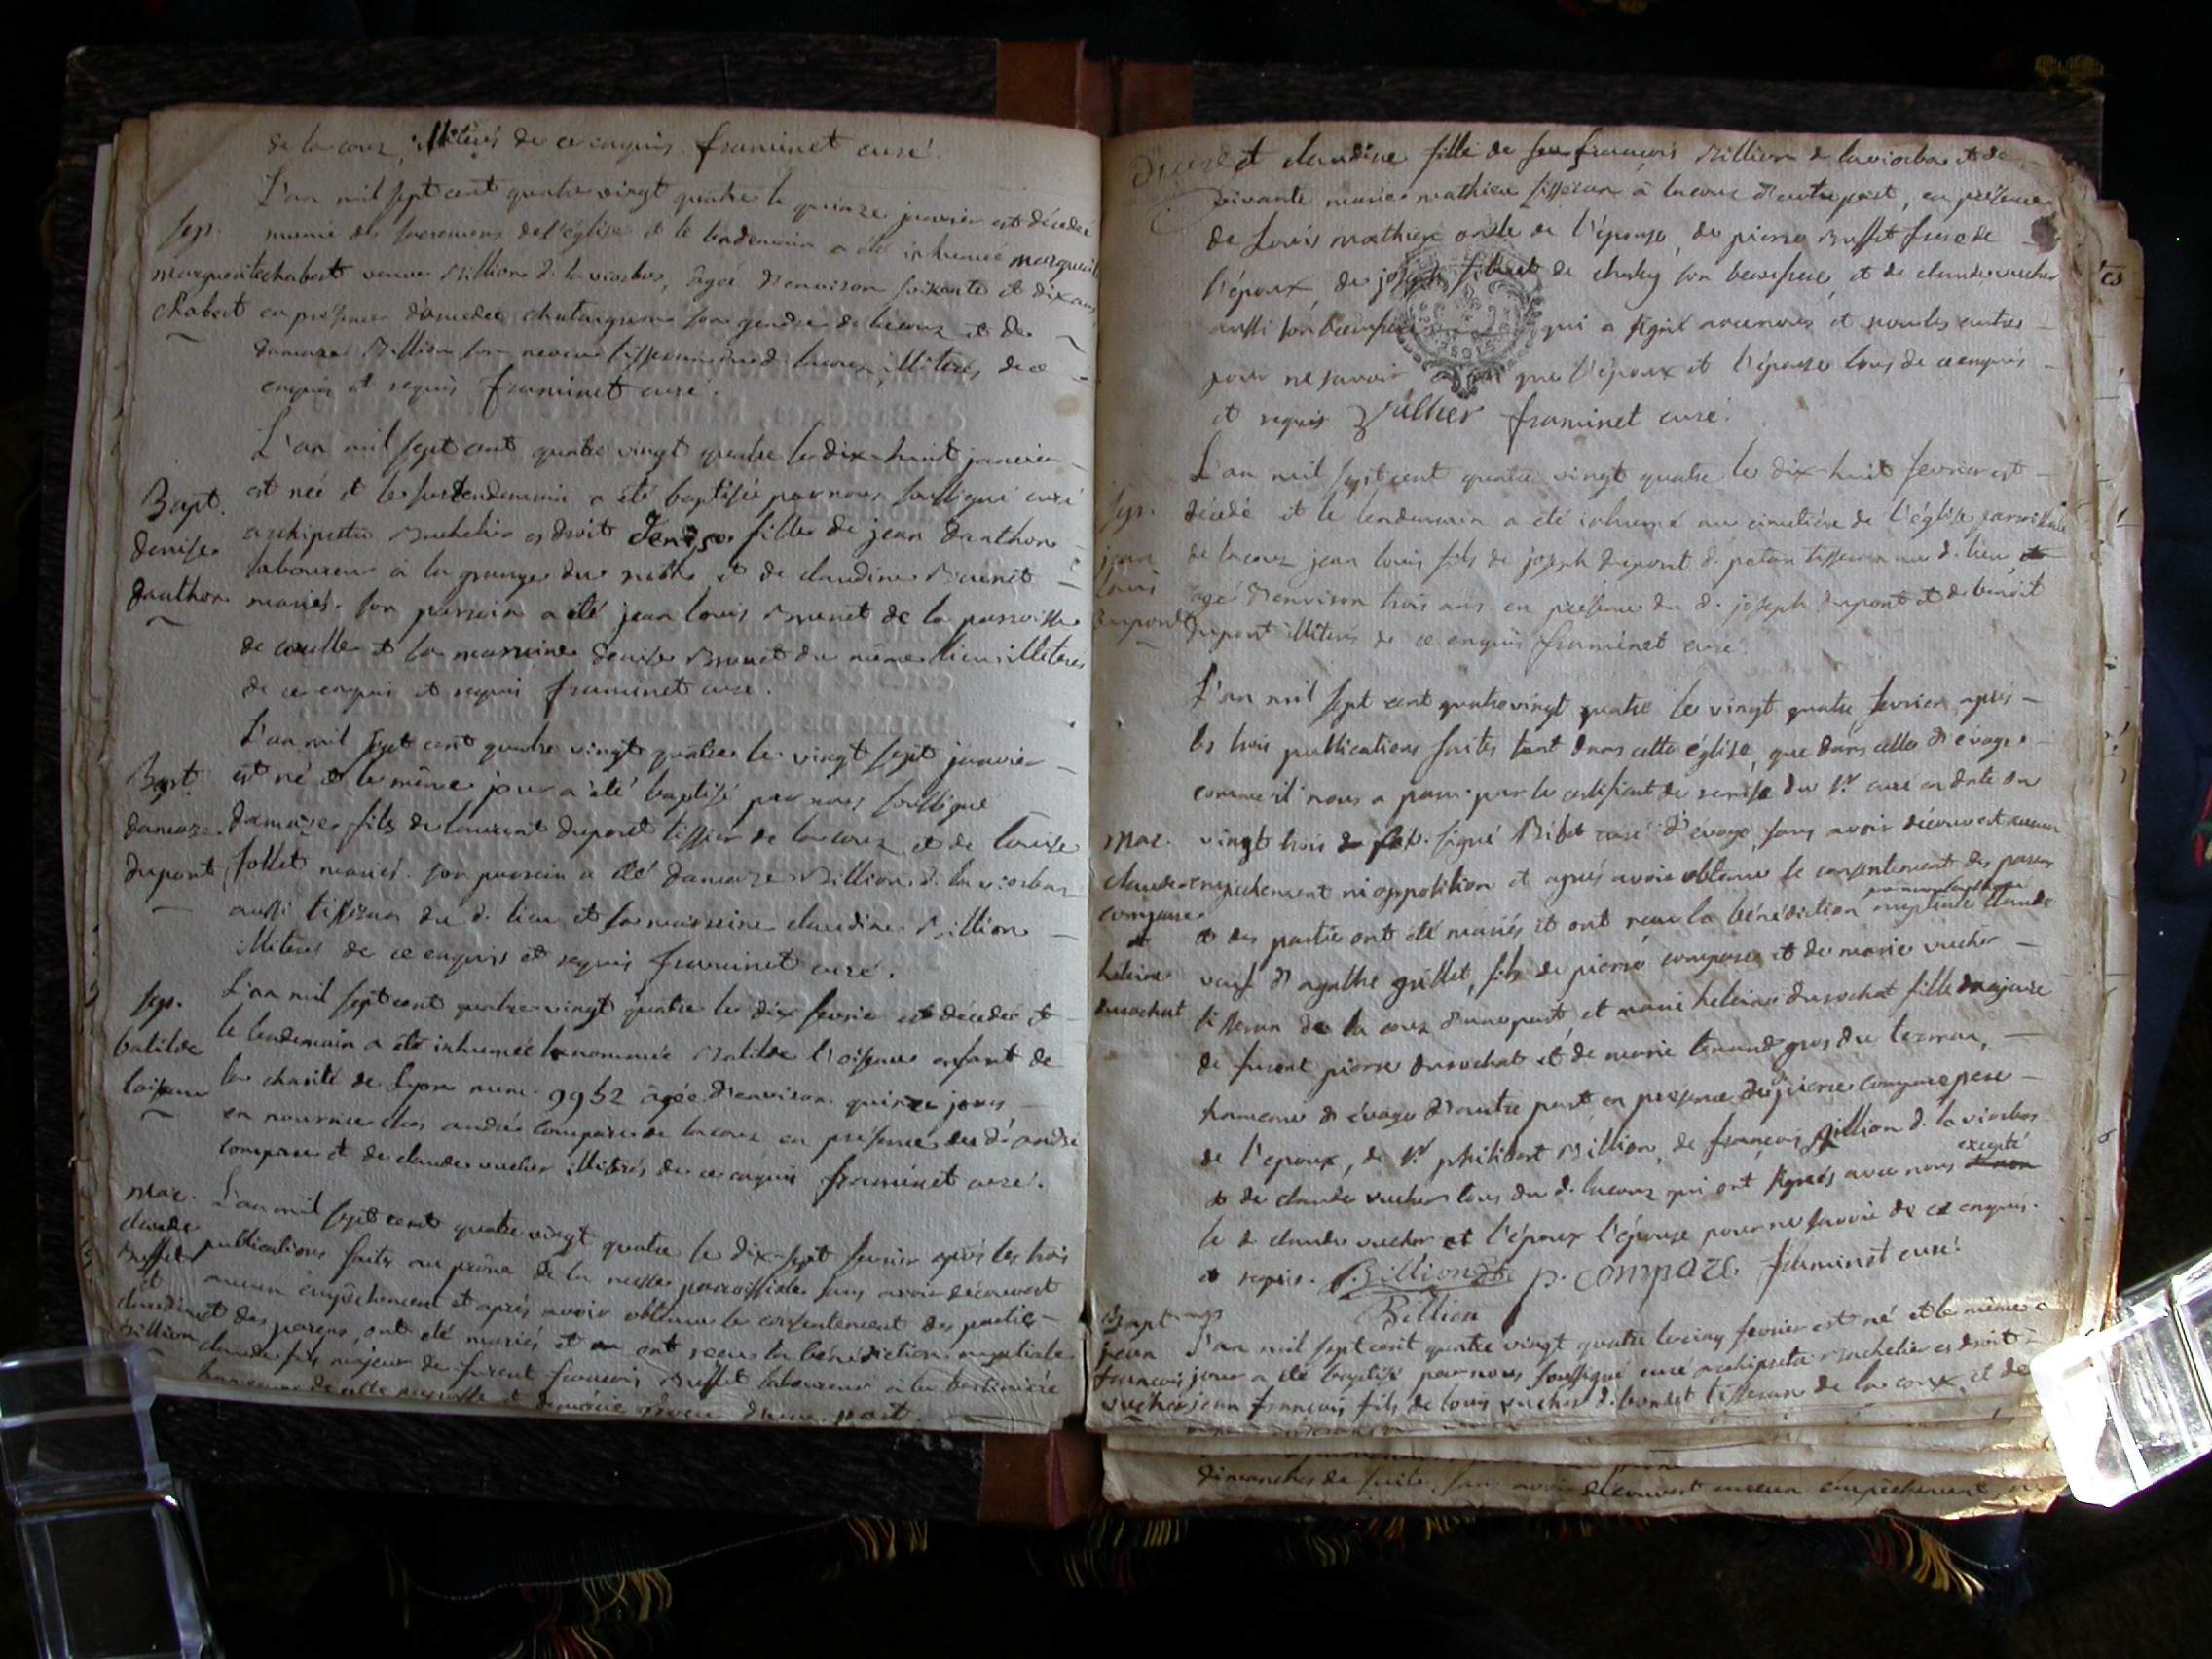 de la coux, illiterés de ce enquis. framinet curé.
L'an mil sept cent quatre vingt quatre le quinze janvier est décedée
sep. munie des sacremens de l'église et le lendemain a été inhumée marguerite
marguerite chabert veuve Billion d. la viorbas, âgée d'environ soixante et dix ans,
chabert en présence d'amedée son gendre de lacoux et de
damaze Billion son neveu tisseran d. lacoux, illiterés, de ce
enquis et requis framinet curé.
L'an mil sept cent quatre vingt quatre le dix-huit janvier
Bapt. est née et le surlendemain a été baptisée par nous soussigné curé
archiprêtre Bachelier es droit Denise fille de jean Danthon
denise laboureur à la grange du et de claudine Brunet
danthon mariés. son parrain a été jean louis Brunet de la parroisse
de et la marraine denise Brunet du même lieu illiterés
de ce enquis et requis framinet curé.
L'an mil sept cent quatre vingt quatre le vingt sept janvier
Bapt. est né et le même jour a été baptisé par nous soussigné
damaze damaze fils de laurent dupont tissier de la coux et de louise
dupont follet mariés. son parrain a été damaze Billion d. la viorbas
aussi tisseran du d. lieu et la marraine claudine Billion
illiterés de ce enquis et requis framinet curé.
sep. L'an mil sept cent quatre vingt quatre le dix fevrier est décedée et
batilde le lendemain a été inhumée la nommée Batilde l'oiseau enfant de
loiseau la charité de Lyon num. 9952 âgée d'environ quinze jours,
en nourrice chez andré compare de lacoux en présence du d. andré
compare et de claude vucher illiterés de ce enquis framinet curé.
mar. L'an mil sept cent quatre vingt quatre le dix-sept fevrier après les trois
claude publications faites au prône de la messe parroissiale sans avoir découvert
Buffet aucun empêchement et après avoir obtenu le consentement des parties
et et des parens, ont été mariés et ont reçu la bénédiction nuptiale
claudine claude fils majeur de furent françois Buffet laboureur à la
Billion de cette parroisse et d'une part
et claudine fille de feu françois Billion d. laviorbas et de
vivante marie mathieu tisseran à lacoux d'autre part, en présence
de Louis mathieu oncle de l'épouse, de pierre Buffet frere de
l'époux, de joseph de son beaufrere, et de claude vucher
aussi son beaufrere qui a signé avec nous et non les autres
pour ne savoir que l'époux et l'épouse tous de ce enquis
et requis vucher framinet curé.
L'an mil sept cent quatre vingt quatre le dix-huit fevrier est
sep. décedé et le lendemain a été inhumé au cimetière de l'église parroissiale
jean de lacoux jean louis fils de joseph dupont d. petan tisseran au d. lieu,
louis âgé d'environ trois ans en présence du d. joseph dupont et de benoit
dupont dupont illiterés de ce enquis framinet curé.
L'an mil sept cent quatre vingt quatre le vingt quatre fevrier après
les trois publications faites tant dans cette église, que dans celle d'évoge
comme il nous a paru par le certificat de remise du sr. curé en date du
mar. vingt trois signé Bibet curé d'évoge, sans avoir découvert aucun
claude empêchement ni opposition et après avoir obtenu le consentement des parens
compare et des parties ont été mariés et ont reçu la bénédiction nuptiale claude
et veuf d'agathe grillet, fils de pierre compare et de marie vucher
heleine
durochat tisseran de la coux d'une part, et marie heleine durochat fille majeure
de furent pierre durochat et de marie tenand gros du terreau,
hameau d'évoge d'autre part, en présence de pierre compare pere
de l'époux, de sr. philibert Billion, de françois Billion d. la viorbas
et de claude vucher tous du d. lacoux qui ont signés avec nous excepté
le d. claude vucher et l'époux l'épouse pour ne savoir de ce enquis.
et requis. Billion p. compare framinet curé.
Billion
Bapt. L'an mil sept cent quatre vingt quatre le cinq fevrier est né et le même
jean jour a été baptisé par nous soussigné curé archiprêtre Bachelier es droit
francois
vucher jean françois fils de louis vucher d. tisseran de la coux, et de
dimanches de suite, sans avoir découvert aucun empêchement,